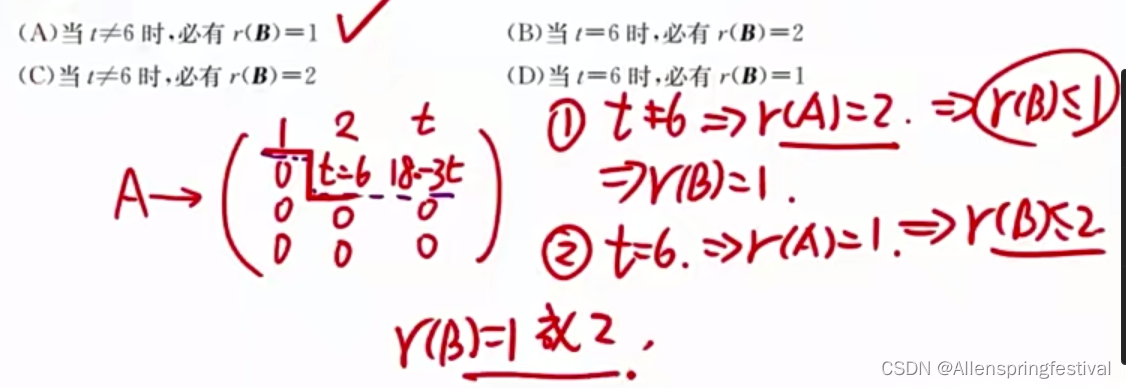 (A)当 t≠6 时,必有 r(B)=1 ✓
(B)当 t=6 时,必有 r(B)=2
(C)当 t≠6 时,必有 r(B)=2
(D)当 t=6 时,必有 r(B)=1
A→
1 2 t
0 t-6 18-3t
0 0 0
0 0 0
① t≠6 ⇒ r(A)=2. ⇒ r(B)≤1
⇒ r(B)=1.
② t=6. ⇒ r(A)=1. ⇒ r(B)≤2
r(B)=1 或 2.
CSDN @Allenspringfestival